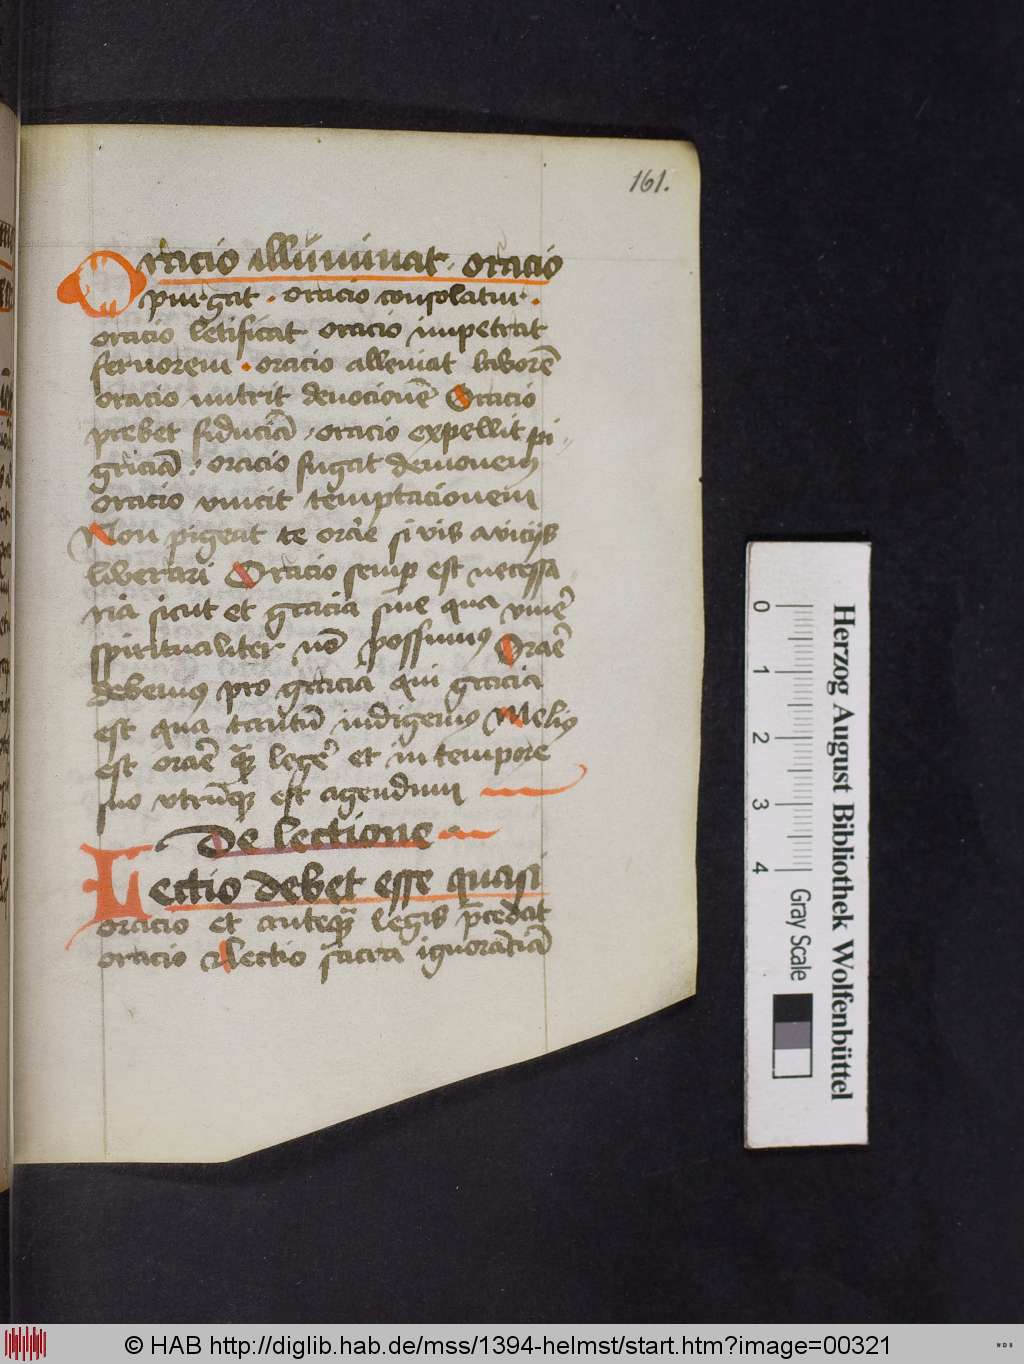 161.
Oracio illuminat. oracio
purgat . oracio consolatur .
oracio letificat oracio impetrat
feruorem . oracio alleuiat laborē
oracio nutrit deuocionē Oracio
prebet fiduciā . oracio expellit pi
griciā . oracio fugat demonem
oracio vincit temptacionem
Non pigeat te orare si vis a vicijs
liberari Oracio semp est necessa
ria sicut et gracia sine qua viuē
spiritualiter nō possumus Orare
debemus pro gracia qui gracia
est qua tantū indigemus Melius
est orare quā legē et in tempore
suo vtrūque est agendum
De lectione
Lectio debet esse quasi
oracio et antequā legis p̄cedat
oracio Lectio sacra ignorātiā
Herzog August Bibliothek Wolfenbüttel
0 1 2 3 4 Gray Scale
© HAB http://diglib.hab.de/mss/1394-helmst/start.htm?image=00321